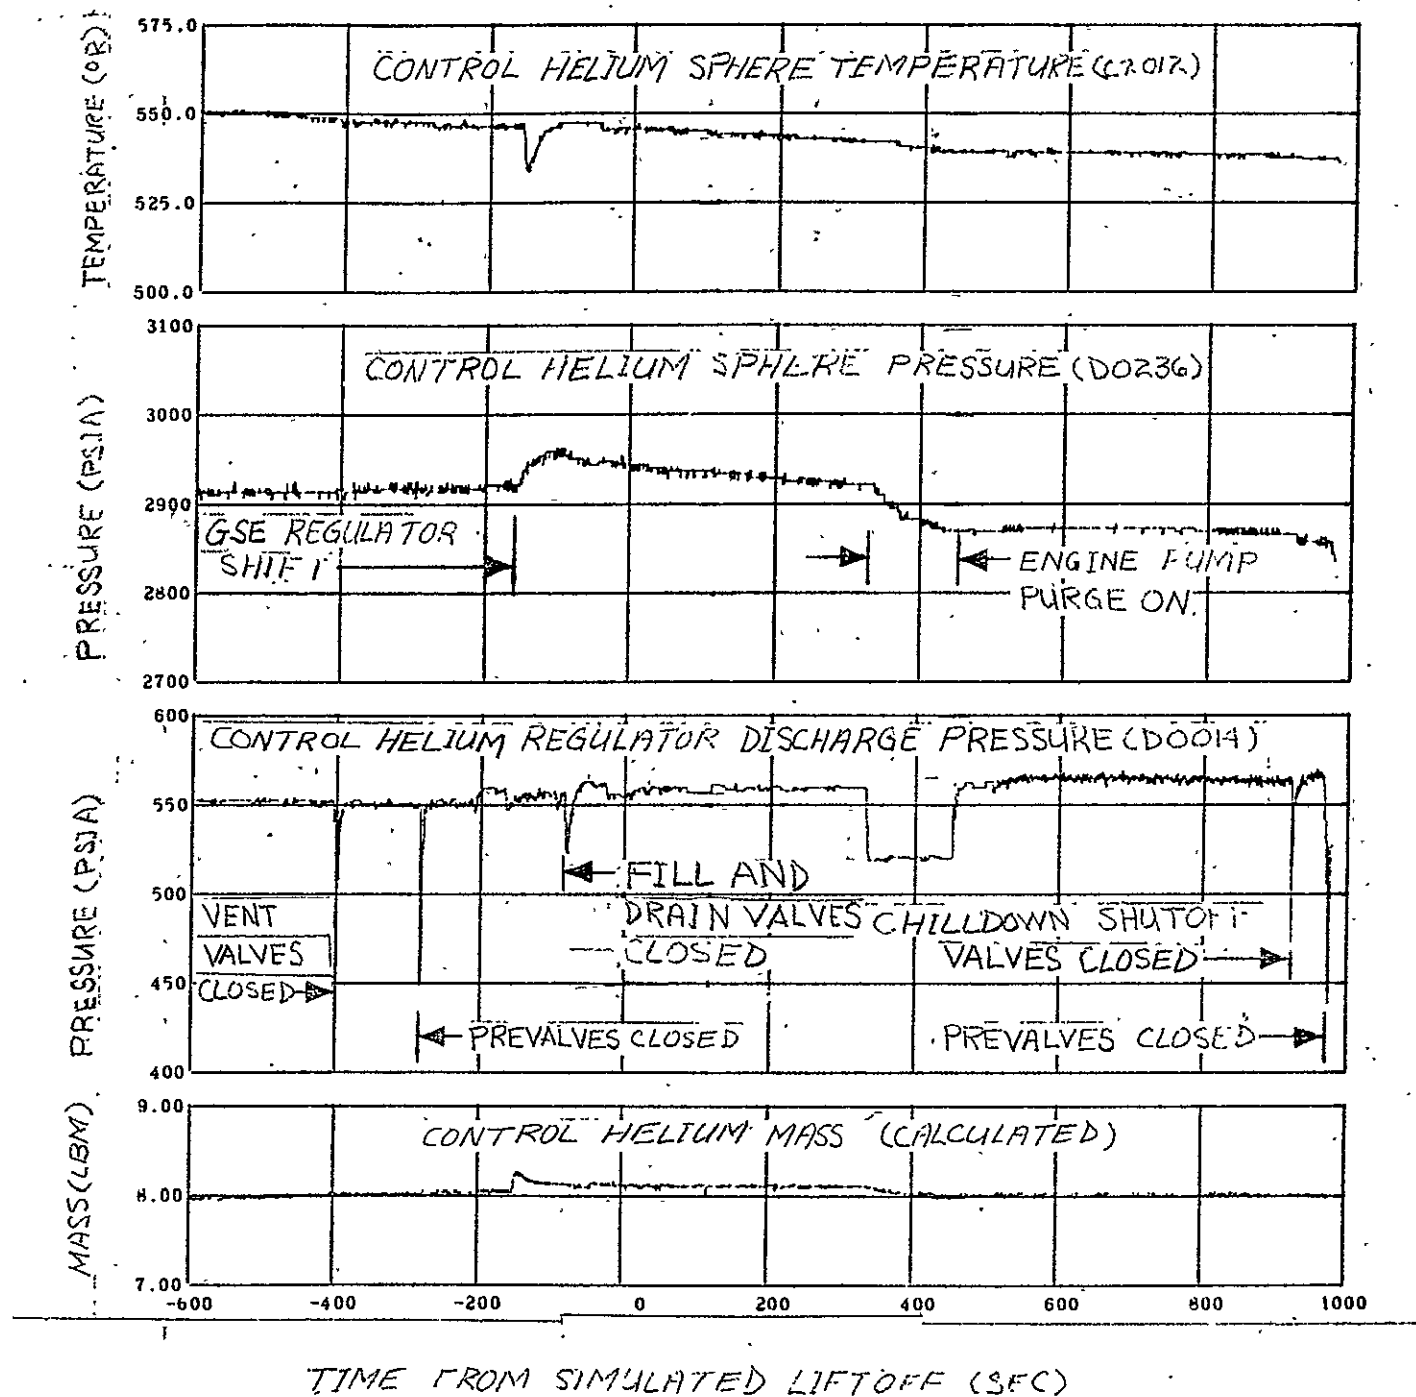 TEMPERATURE (OR)
575.0
550.0
525.0
500.0
CONTROL HELIUM SPHERE TEMPERATURE (C2012)
PRESSURE (PSIA)
3100
3000
2900
2800
2700
CONTROL HELIUM SPHERE PRESSURE (D0236)
GSE REGULATOR
SHIFT
ENGINE PUMP
PURGE ON
PRESSURE (PSIA)
600
550
500
450
400
CONTROL HELIUM REGULATOR DISCHARGE PRESSURE (D0014)
FILL AND
DRAIN VALVES
CLOSED
VENT
VALVES
CLOSED
CHILLDOWN SHUTOFF
VALVES CLOSED
PREVALVES CLOSED
PREVALVES CLOSED
MASS (LBM)
9.00
8.00
7.00
CONTROL HELIUM MASS (CALCULATED)
-600 -400 -200 0 200 400 600 800 1000
TIME FROM SIMULATED LIFTOFF (SEC)